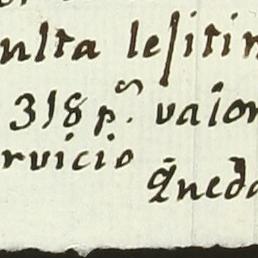 ulta lesitin
318 p.ˢ vaion
rvicio
Queda